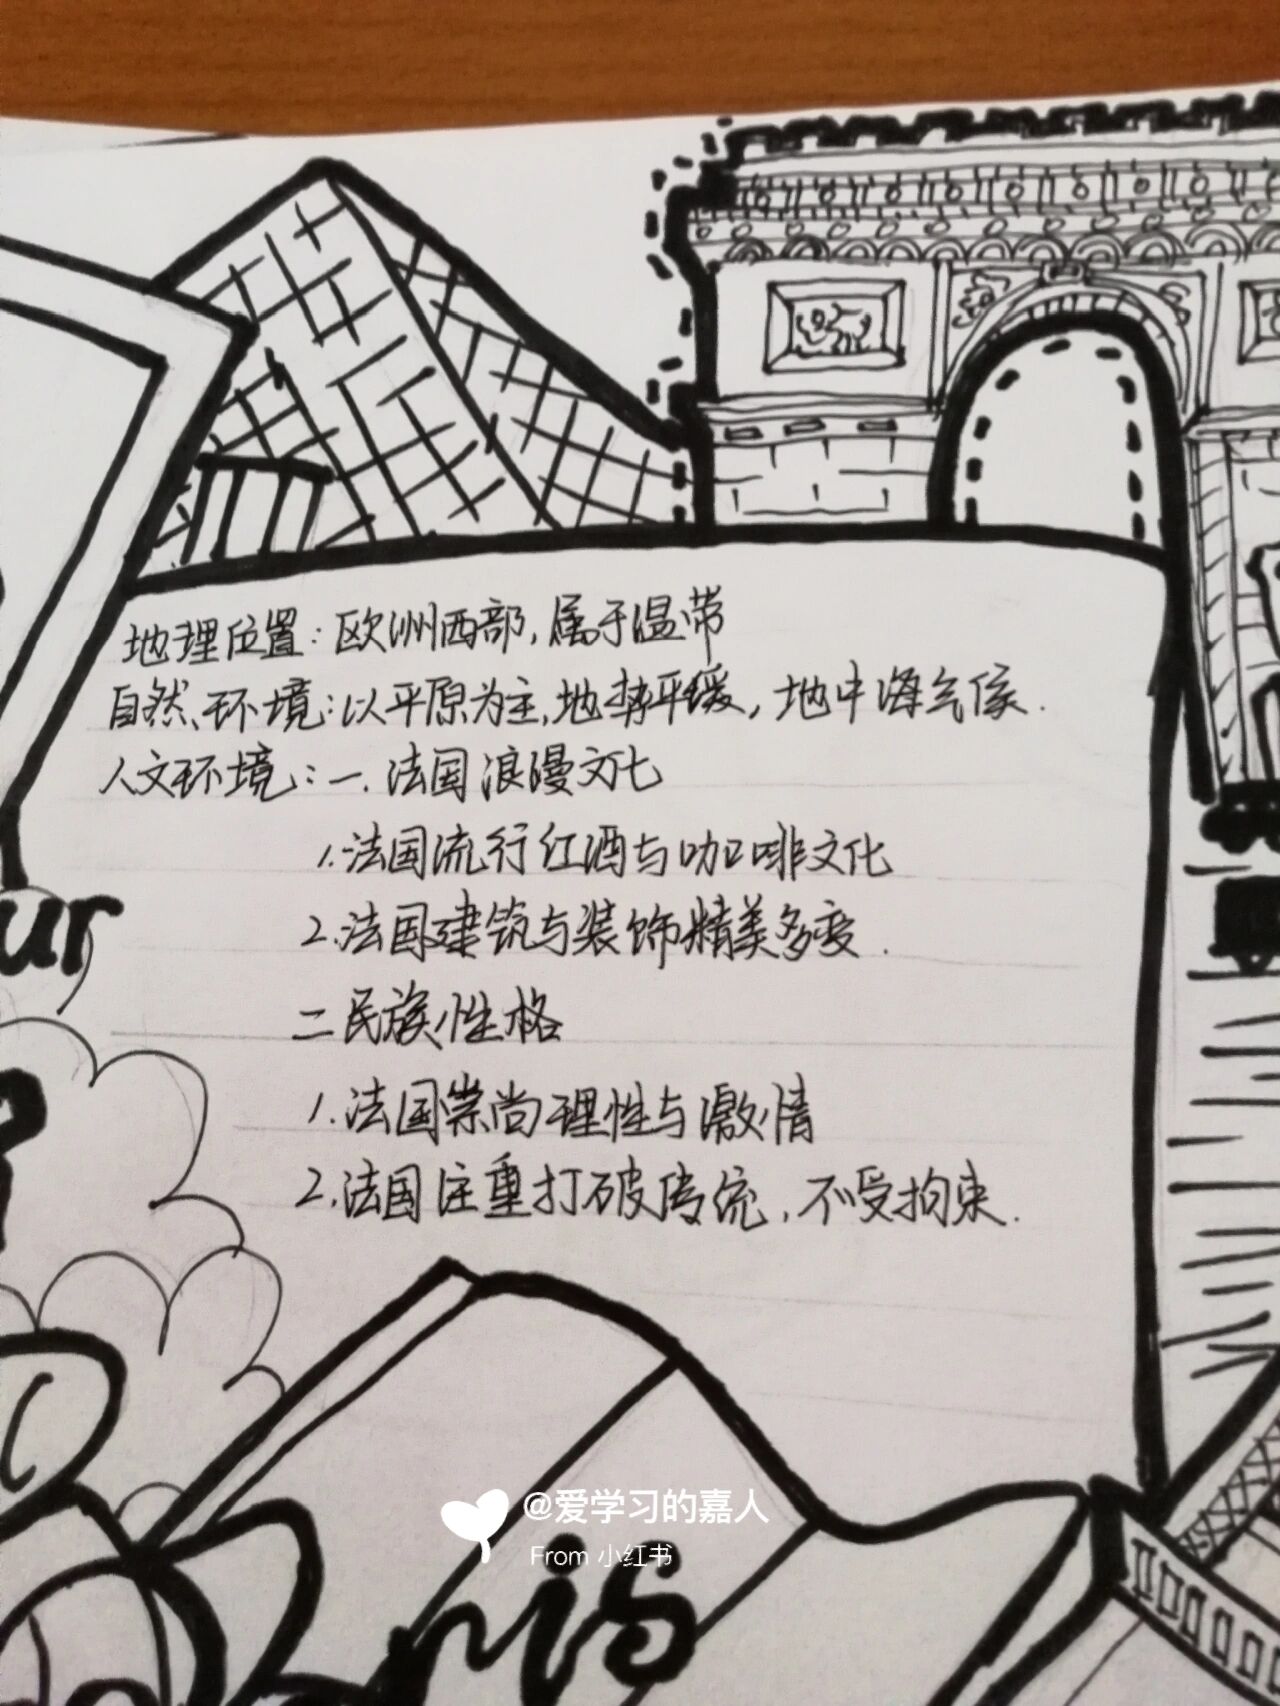 地理位置：欧洲西部，属于温带
自然环境：以平原为主，地势平缓，地中海气候.
人文环境：一.法国浪漫文化
1.法国流行红酒与咖啡文化
2.法国建筑与装饰精美多变.
二民族性格
1.法国崇尚理性与激情
2.法国注重打破传统，不受拘束.
ur
@爱学习的嘉人
From 小红书
nis